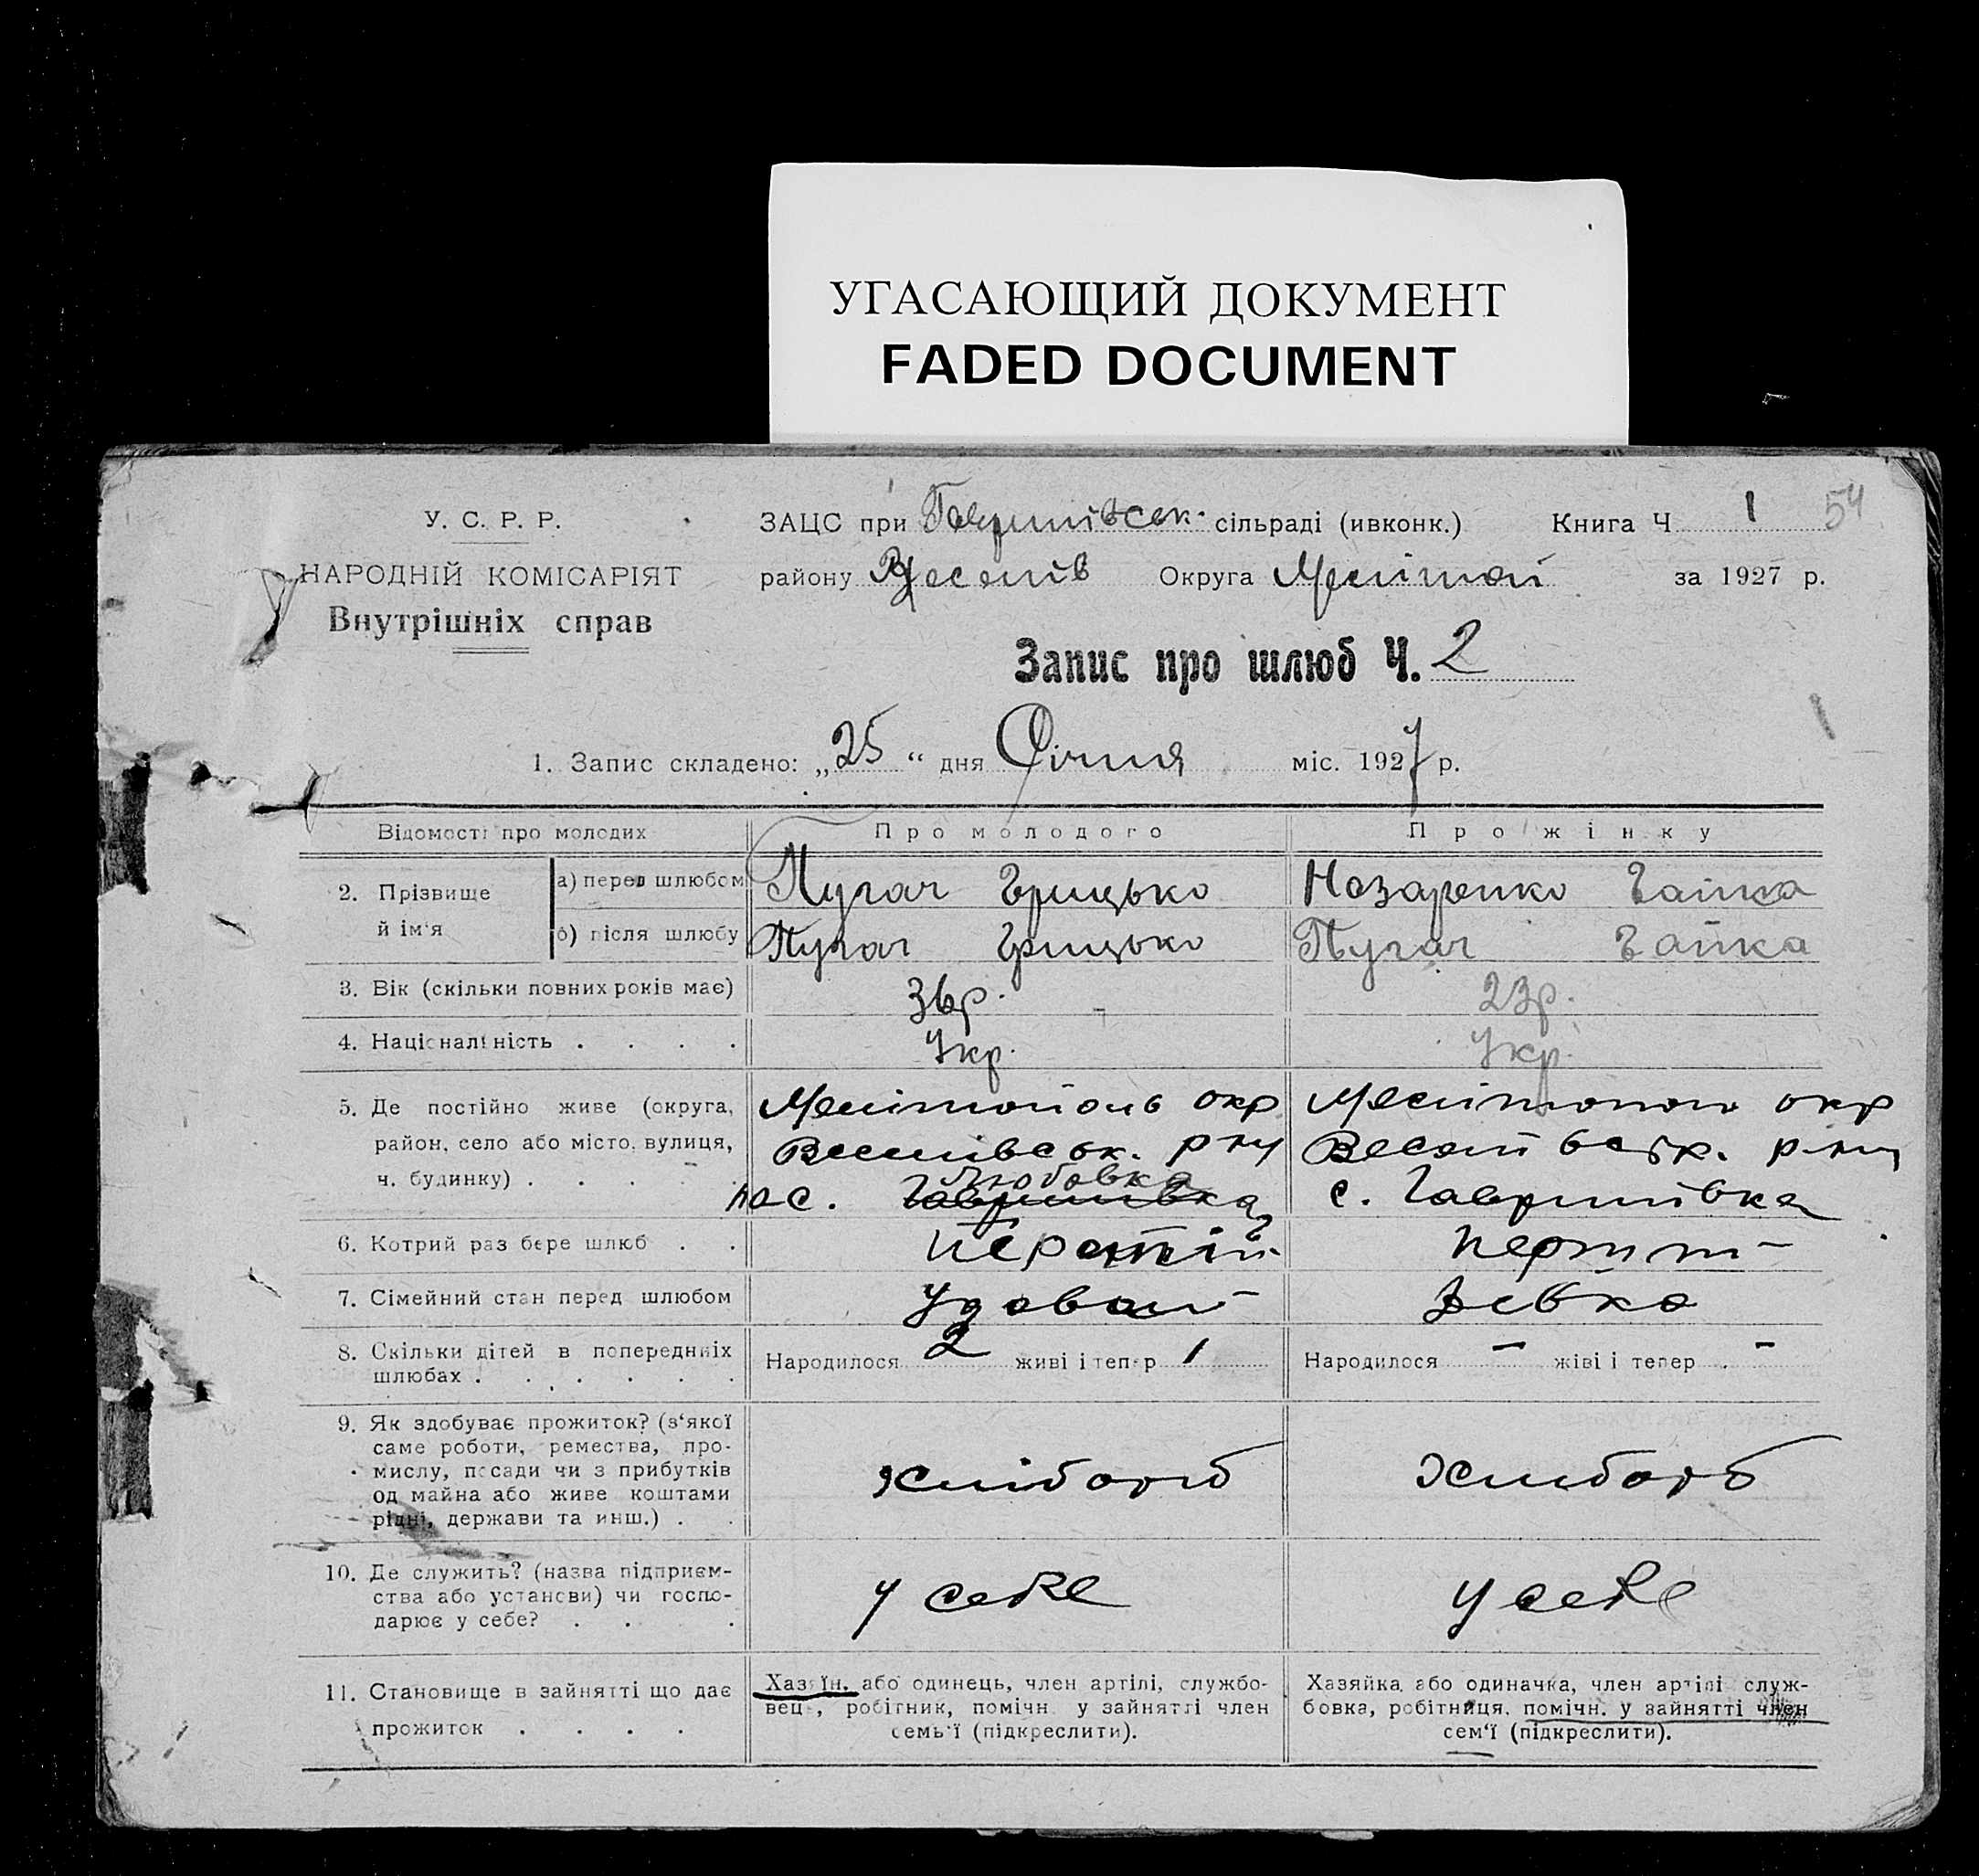 УГАСАЮЩИЙ ДОКУМЕНТ
FADED DOCUMENT
54
У. С. Р. Р.
НАРОДНІЙ КОМІСАРІЯТ
Внутрішніх справ
ЗАЦС при Гавришівськ. сільраді (ивконк.) Книга Ч 1
району Веселів Округа Меліտոп за 1927 р.
Запис про шлюб Ч. 2
1. Запис складено: „25“ дня Січня міс. 1927 р.
Відомості про молодих Про молодого Про жінку
2. Прізвище й ім‘я
а) перед шлюбом Пугач Грицько Назаренко Гапка
б) після шлюбу Пугач Грицько Пугач Гапка
3. Вік (скільки повних років має) 36р. 23р.
4. Національність . . . . Укр. Укр.
5. Де постійно живе (округа, Мелітополь окр Мелітополь окр
район, село або місто, вулиця, Веселівськ. р-ну Веселівськ. р-ну
ч. будинку) . . . . . пос. Любовка Гавришівка с. Гавришівка
6. Котрий раз бере шлюб . . перший
7. Сімейний стан перед шлюбом Удовец Дівка
8. Скільки дітей в попередніх Народилося 2 живі і тепер 1 Народилося – жіві і тепер –
шлюбах . . . . . .
9. Як здобуває прожиток? (з‘якої
саме роботи, ремества, про-
мислу, посади чи з прибутків хлібороб хлибороб
од майна або живе коштами
рідні, держави та инш.) . .
10. Де служить? (назва підприєм-
ства або установи) чи госпо- у себе у себе
дарює у себе? . . .
11. Становище в зайнятті що дає
прожиток . . . .
Хазяїн, або одинець, член артілі, службо-
вець, робітник, помічн. у зайнятті член
семь‘ї (підкреслити).
Хазяйка або одиначка, член артілі служ-
бовка, робітниця, помічн. у зайнятті член
сем‘ї (підкреслити).